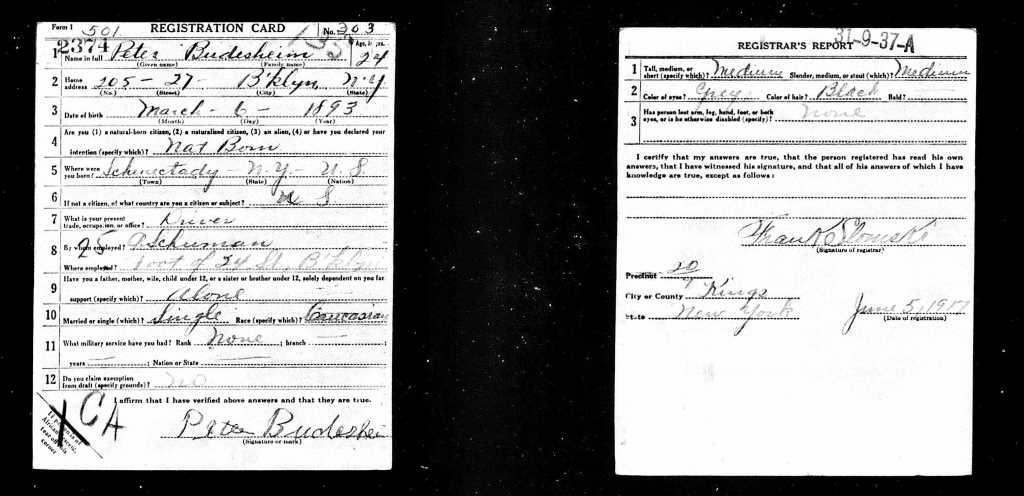 Form 1 501 REGISTRATION CARD No. 203
2374
1 Name in full Peter Budesheim Age, in yrs. 24
(Given name) (Family name)
2 Home address 205 - 27 - B'klyn, N.Y
(No.) (Street) (City) (State)
3 Date of birth March - 6 - 1893
(Month) (Day) (Year)
4 Are you (1) a natural-born citizen, (2) a naturalized citizen, (3) an alien, (4) or have you declared your
intention (specify which)? Nat Born
5 Where were you born? Schenectady - N.Y. - U.S
(Town) (State) (Nation)
6 If not a citizen, of what country are you a citizen or subject? U S
7 What is your present trade, occupation, or office? Driver
8 By whom employed? P. Schuman
25
Where employed? Foot of 24 St., B'klyn
9 Have you a father, mother, wife, child under 12, or a sister or brother under 12, solely dependent on you for
support (specify which)? Alone
10 Married or single (which)? Single Race (specify which)? Caucasian
11 What military service have you had? Rank None ; branch ;
years ; Nation or State
12 Do you claim exemption from draft (specify grounds)? No
I affirm that I have verified above answers and that they are true.
CA
Peter Budeshei
(Signature or mark)
If person is of African descent, tear off this corner
31-9-37-A
REGISTRAR'S REPORT
1 Tall, medium, or short (specify which)? Medium Slender, medium, or stout (which)? Medium
2 Color of eyes? Grey Color of hair? Black Bald?
3 Has person lost arm, leg, hand, foot, or both eyes, or is he otherwise disabled (specify)? None
I certify that my answers are true, that the person registered has read his own
answers, that I have witnessed his signature, and that all of his answers of which I have
knowledge are true, except as follows:
Frank Slomski
(Signature of registrar)
Precinct 20
City or County Kings
State New York June 5, 1917
(Date of registration)